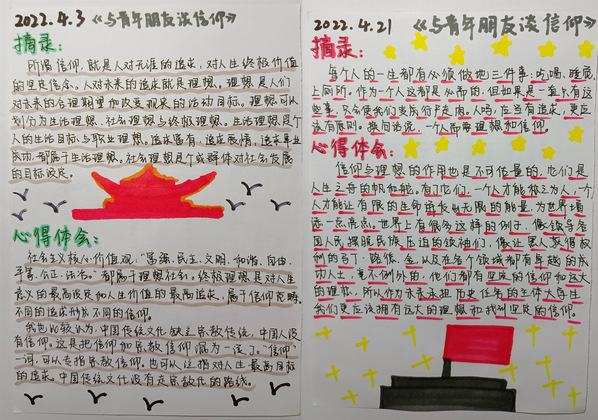 2022.4.3 《与青年朋友谈信仰》
摘录:
所谓信仰,就是人对无准的追求,对人生终极价值
的坚定信念。人对未来的追求就是理想。理想是人们
对未来的合理期望加改变现采的活动目标。理想可以
划分为生活理想、社会理想与终极理想。生活理想是个
人的生活目标与职业理想,追求富有,追求爱情,追求事业
成功,都属于生活理想。社会理想是个或群体对社会发展
的目标设定。
心得体会:
社会主义核心价值观,“富强、民主、文明、和谐、自由、
平等、公正、法治。”都属于理想社会。终极理想是对人生
意义的最高设定和人生价值的最高追求,属于信仰范畴,
不同的追求形成不同的信仰。
我也比较认为,中国传统文化缺乏宗教传统,中国人没
有信仰。这是把信仰和宗教信仰混为一谈了。“信仰”
一词,可以专指宗教信仰。也可以泛指对人生最高目标
的追求。中国传统文化没有走宗教化的路线。
2022.4.21 《与青年朋友谈信仰》
摘录:
每个人的一生都有必须做的三件事:吃喝、睡觉、
上厕所。作为一个人这都是必需的,但如果是一直只有这
些事,只会使我们变成行尸走肉。人吗,应当有追求,更应
该有原则。换句话说,一个人需要理想和信仰。
心得体会:
信仰与理想的作用也是不可估量的,它们是
人生之舟的帆和舵。有了它们,一个人才能称之为人,一个
人才能让有限的生命成长出无限的能量,为世界增
添一点亮点。世界上有很多这样的例子,像领导各
国人民摆脱民族压迫的领袖们,像让黑人取得权
利的马丁·路德·金,以及在各个领域都有卓越的成
功人士,无个例外的,他们都有坚定的信仰和远大
的理想,所以作为未来承担历史任务的主体大学生
我们更应该拥有远大的理想和找到坚定的信仰。